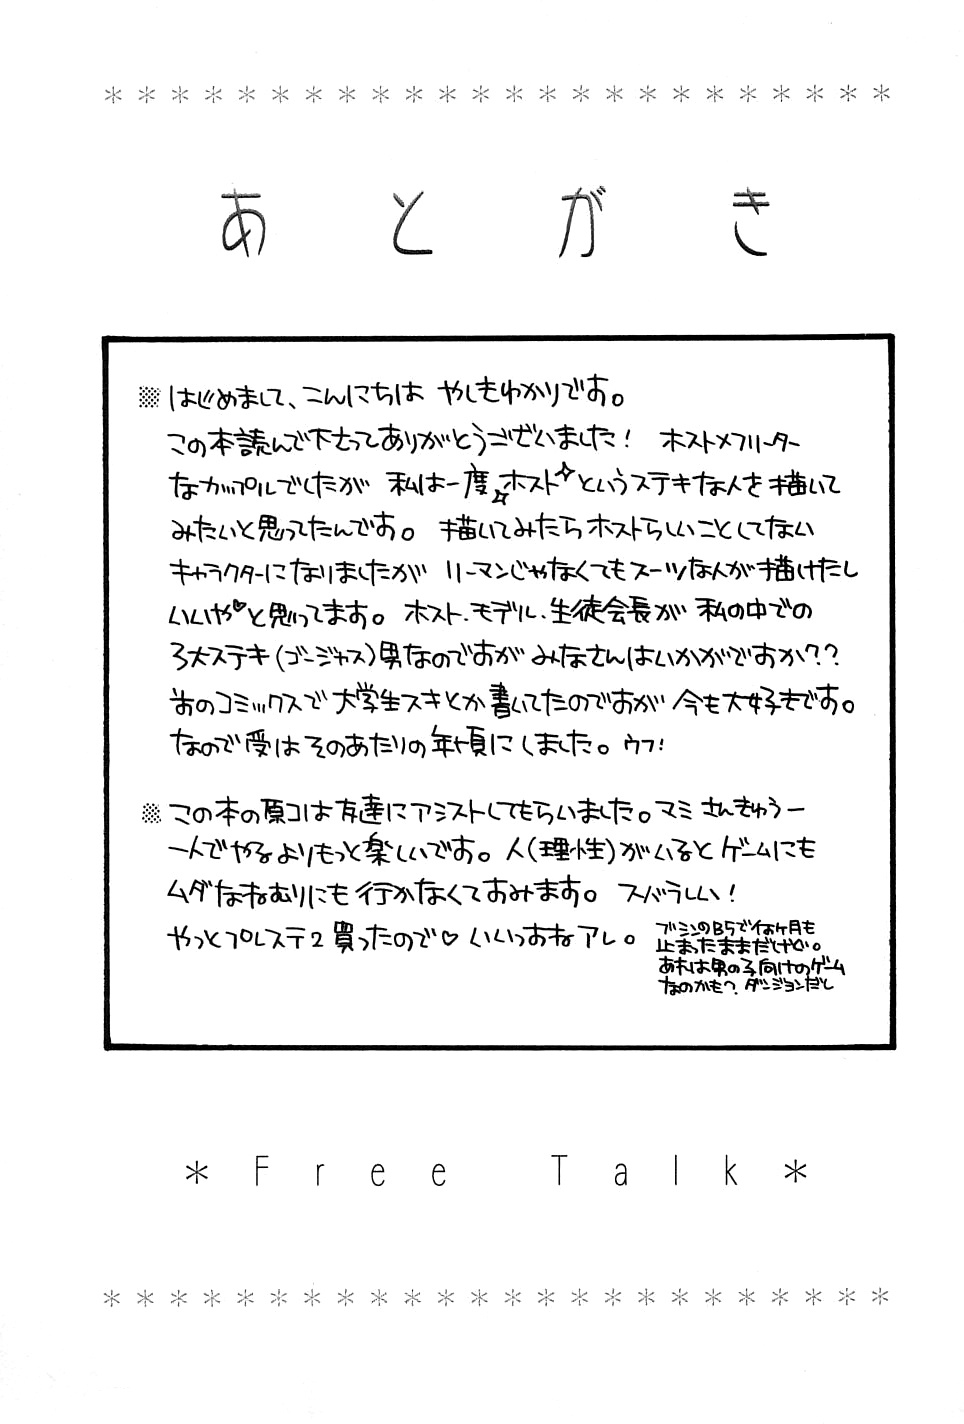 ＊＊＊＊＊＊＊＊＊＊＊＊＊＊＊＊＊＊＊＊＊＊＊＊
あとがき
はじめまして、こんにちは やしもわかりです。
この本読んで下さってありがとうございました! ホスト×フリーター
なカップルでしたが 私は一度 ホスト というステキな人を描いて
みたいと思ってたんです。 描いてみたらホストらしいことしてない
キャラクターになりましたが リーマンじゃなくてもスーツな人が描けたし
いいや♥と思ってます。 ホスト.モデル.生徒会長が 私の中での
3大ステキ(ゴージャス)男なのですが みなさんはいかがですか??
前のコミックスで 大学生スキとか書いてたのですが 今も大好きです。
なので受はそのあたりの年頃にしました。ウフ!
この本の原コは友達にアシストしてもらいました。マミさんきゅうー
一人でやるよりもっと楽しいです。人(理性)がいるとゲームにも
ムダなねむりにも行かなくてすみます。 スバラしい!
やっとプレステ2買ったので♡いいっすねアレ。
ブミンのB5で1ヶ月も
止まったままだけど。
あれは男の子向けのゲーム
なのかも?ダンジョンだし
＊ Free Talk ＊
＊＊＊＊＊＊＊＊＊＊＊＊＊＊＊＊＊＊＊＊＊＊＊＊